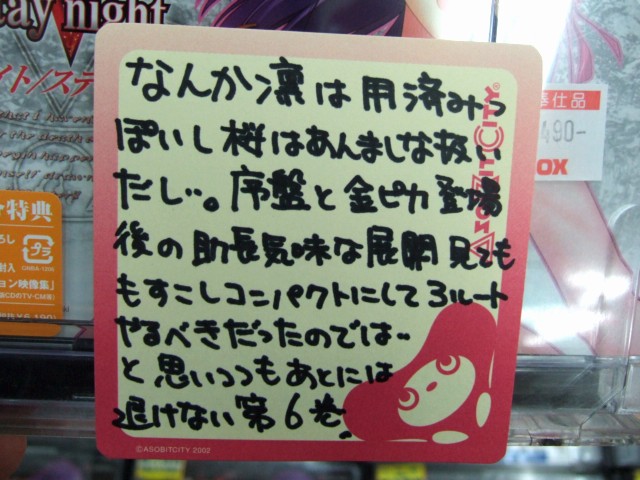 ay night
イト/ステ
なんか凛は用済みっ
ぽいし桜はあんましな扱い
だし…。序盤と金ピカ登場
後の助長気味な展開見ても
もすこしコンパクトにして3ルート
やるべきだったのでは…
と思いつつもあとには
退けない第6巻。
ASOBITCITY
©ASOBITCITY 2002
奉仕品
490-
OX
特典
プラ
ション映像集」